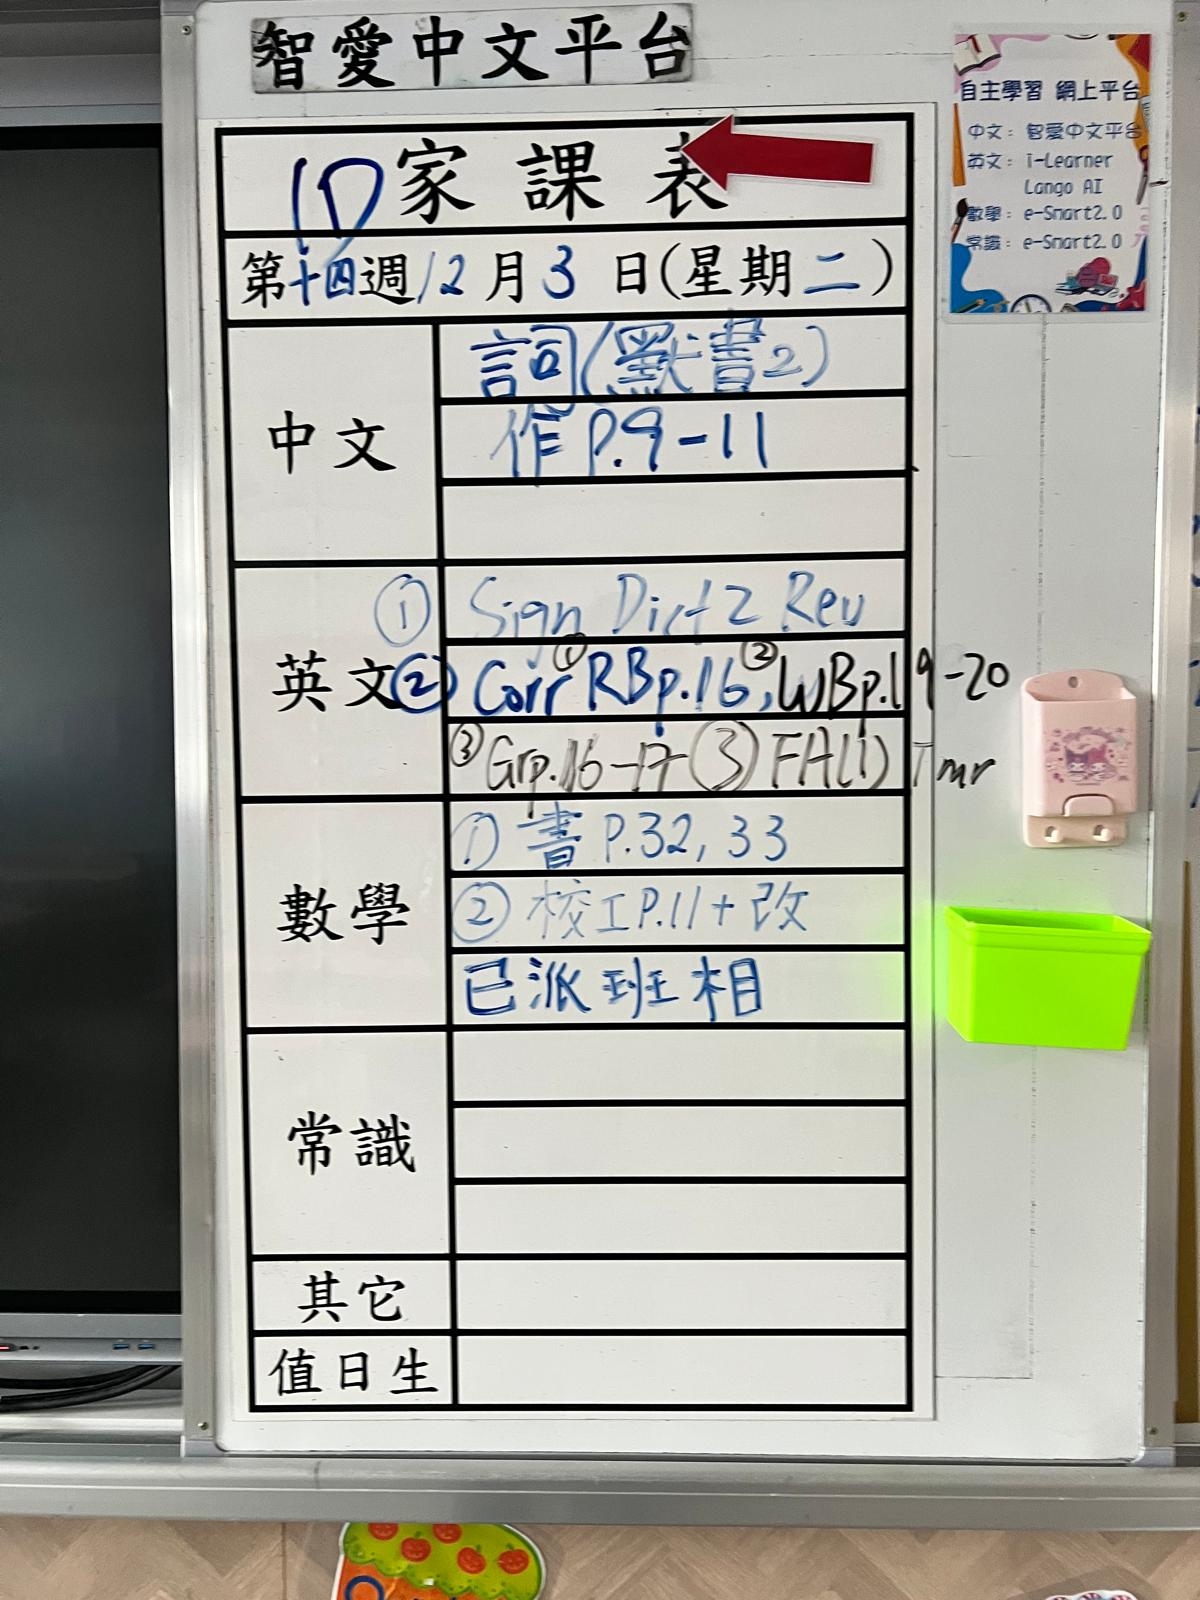 智愛中文平台
1D 家課表
第十四週 12月3日(星期二)
中文
詞(默書2)
作 P.9-11
英文
① Sign Dict 2 Rev
② Corr ① RBp.16, ② WBp.19-20
③ Grp.16-17 ③ FA(1) Tmr
數學
① 書 P.32, 33
② 校工P.11+改
已派班相
常識
其它
值日生
自主學習 網上平台
中文：智愛中文平台
英文：i-Learner
Lango AI
數學：e-Smart2.0
常識：e-Smart2.0